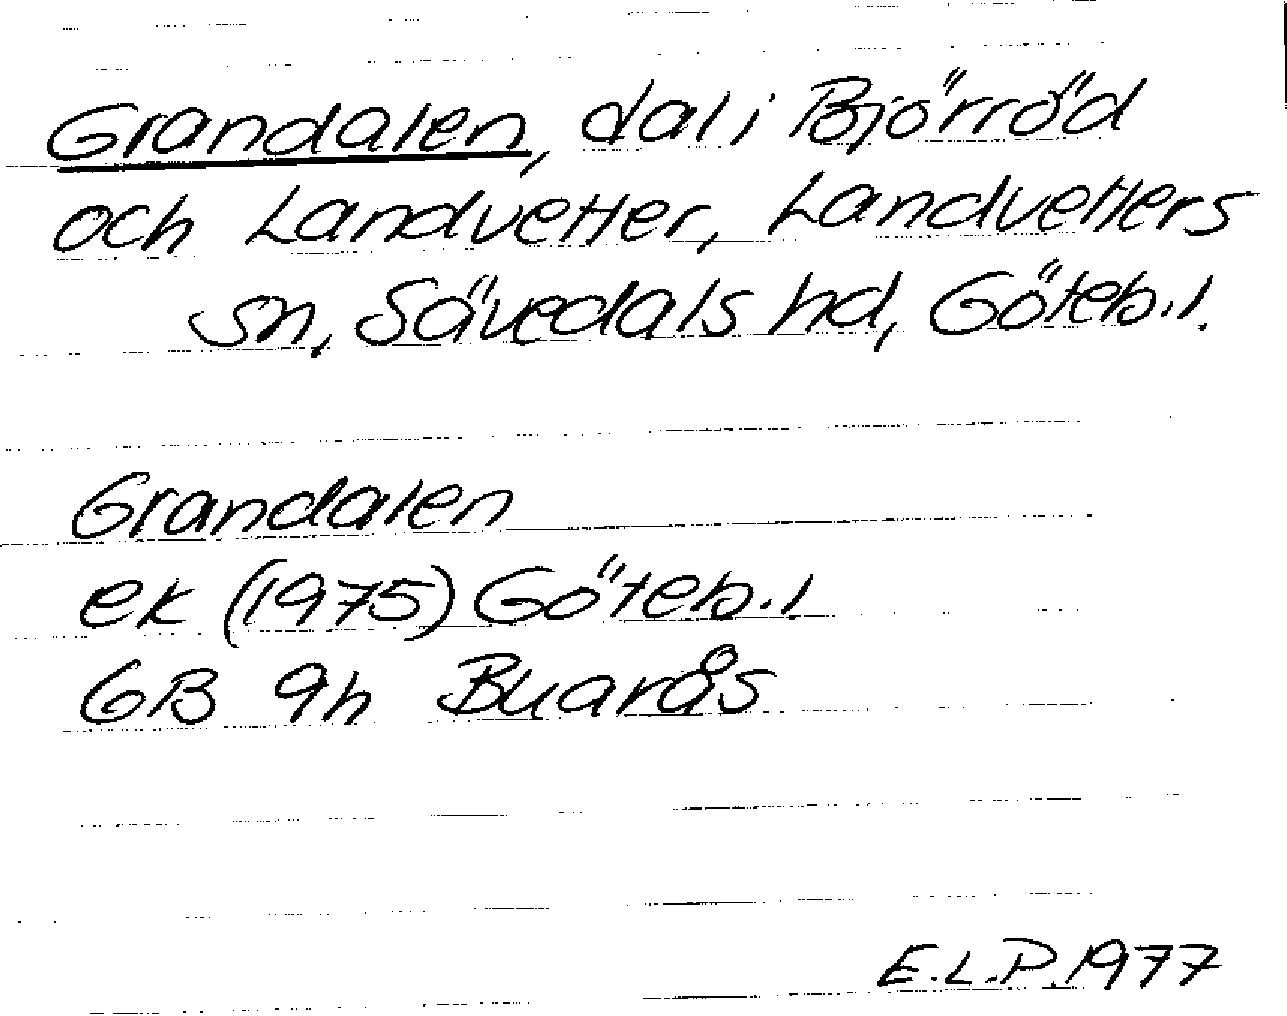 Grandalen, dal i Björröd
och Landvetter, Landvetters
sn, Sävedals hd, Göteb.l.
Grandalen
ek (1975) Göteb.l
GB 9h Buarås
E.L.P. 1977